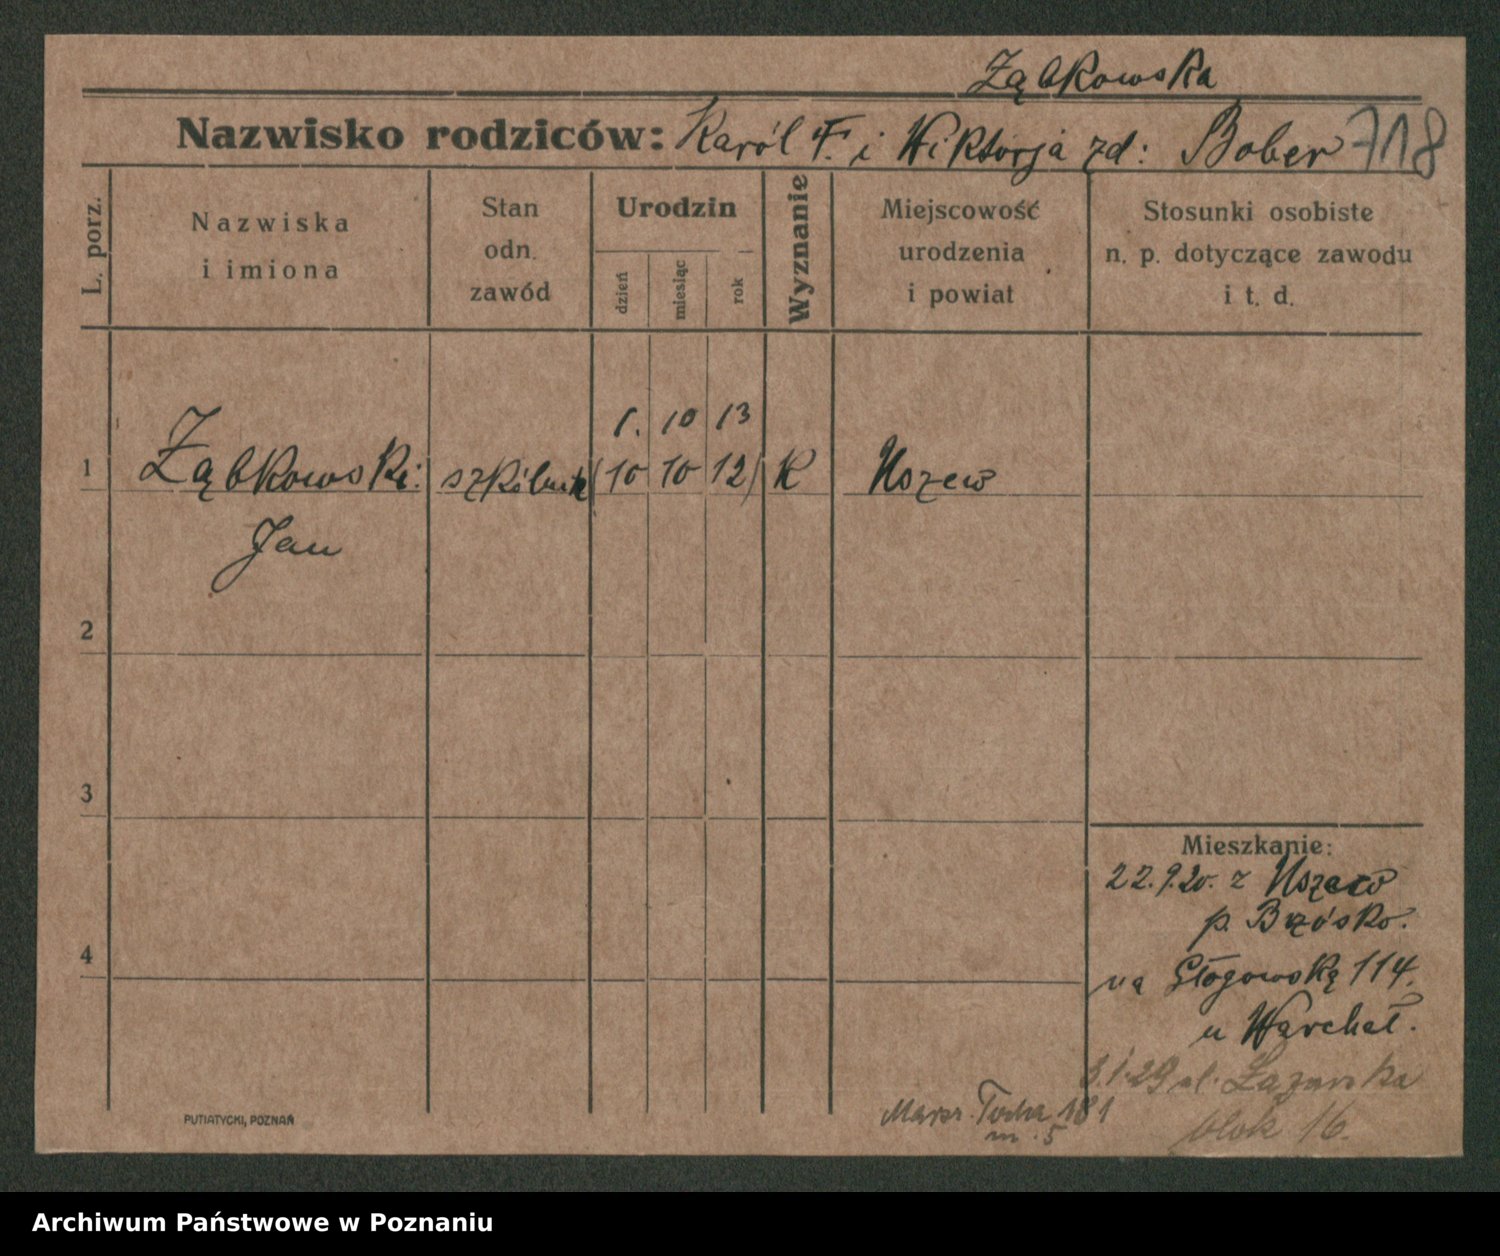 Ząbkowska
Nazwisko rodziców: Karól F. i Wiktorja zd: Bober 718
L. porz.
Nazwiska
i imiona
Stan
odn.
zawód
Urodzin
dzień
miesiąc
rok
Wyznanie
Miejscowość
urodzenia
i powiat
Stosunki osobiste
n. p. dotyczące zawodu
i t. d.
1. 10 13
1 Ząbkowski: (10 10 12) K Uszew
Jan
2
3
4
Mieszkanie:
22.9.20. z Uszew
p. Brzósko.
na Głogowską 114.
u Warchał.
3.1.29 ul. Łazarska
blok 16.
Marsz. Focha 181
m. 5
PUTIATYCKI, POZNAŃ
Archiwum Państwowe w Poznaniu